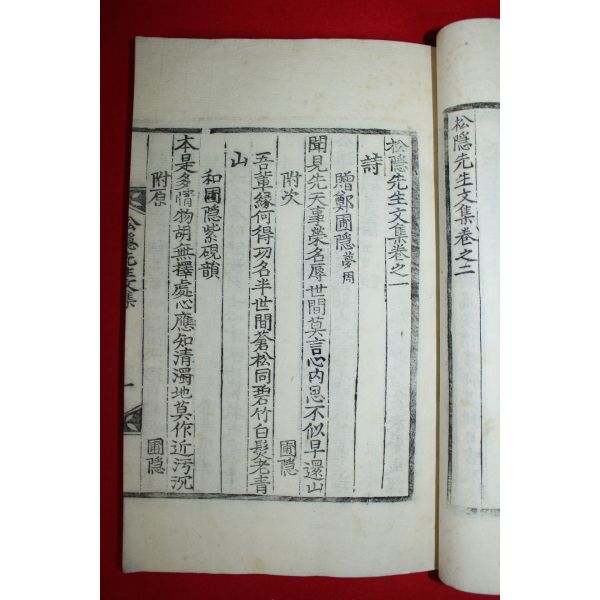 松隱先生文集卷之二
松隱先生文集卷之一
詩
贈鄭圃隱夢周
聞見先天事榮名辱世間莫言心內思不似早還山
附次 圃隱
吾輩緣何得功名半世間蒼松同碧竹白髮老青
山
和圃隱紫硯韻
本是多情物胡無擇處心應知清濁地莫作近污沉
附原 圃隱
松隱先生文集 一